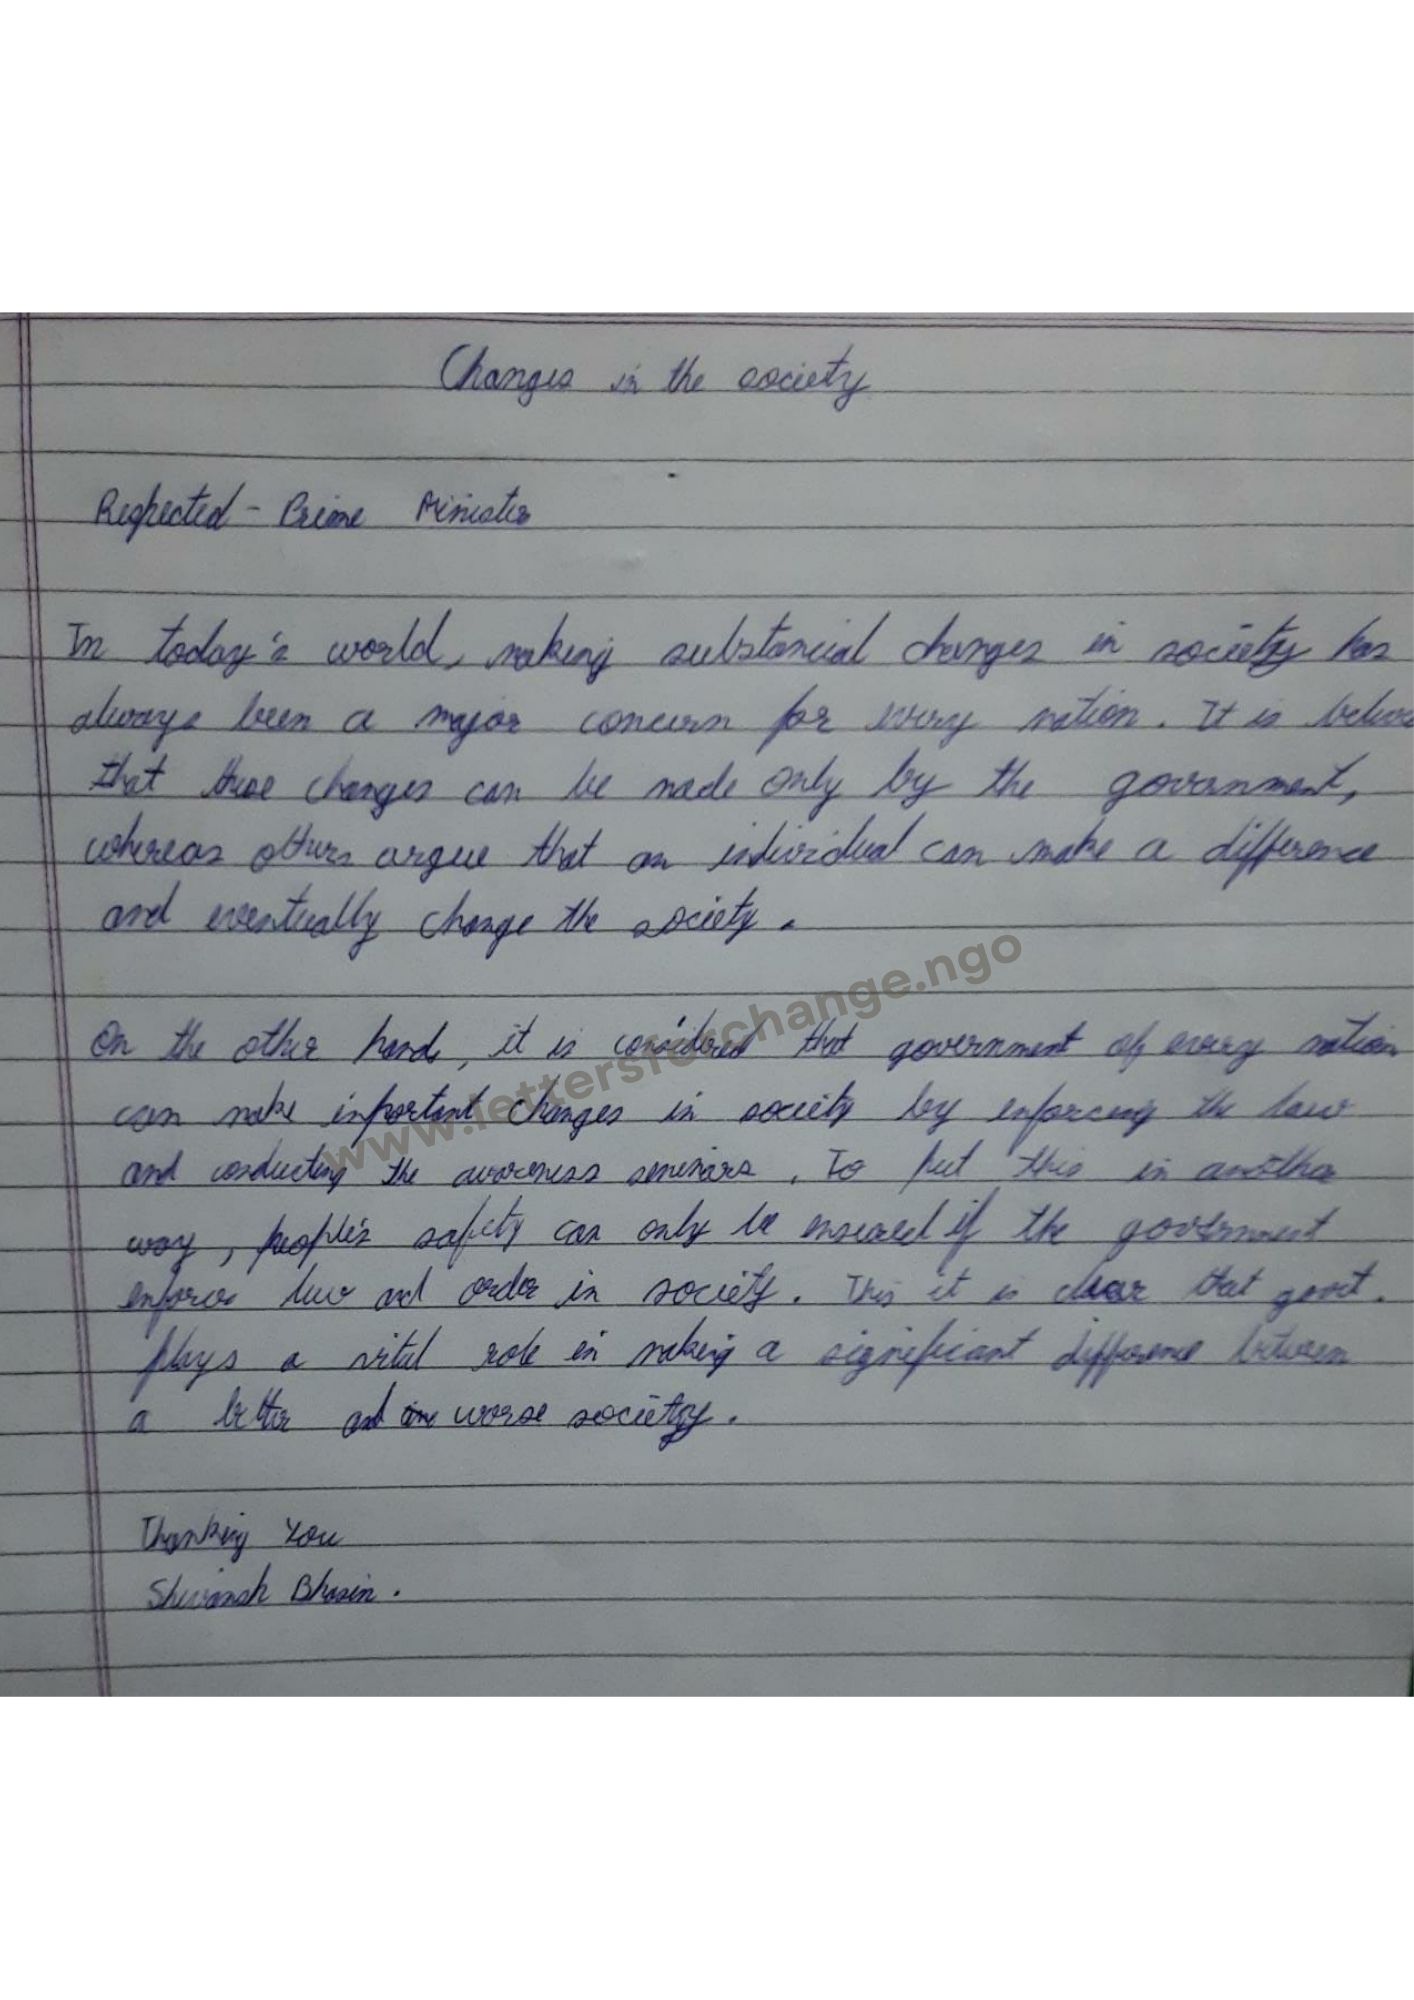 Changes in the society
Respected - Prime Minister
In today's world, making substancial changes in society has
always been a major concern for every nation. It is
that these changes can be made only by the government,
whereas others argue that an individual can make a difference
and eventually change the society.
www.lettersforchange.ngo
On the other hand, it is considered that government of every nation
can make important changes in society by enforcing the law
and conducting the awareness seminars. To put this in another
way, people's safety can only be ensured if the government
enforce law and order in society. This it is clear that govt.
plays a vital role in making a significant difference between
a better and worse society.
Thanking You
Shivansh Bhasin.